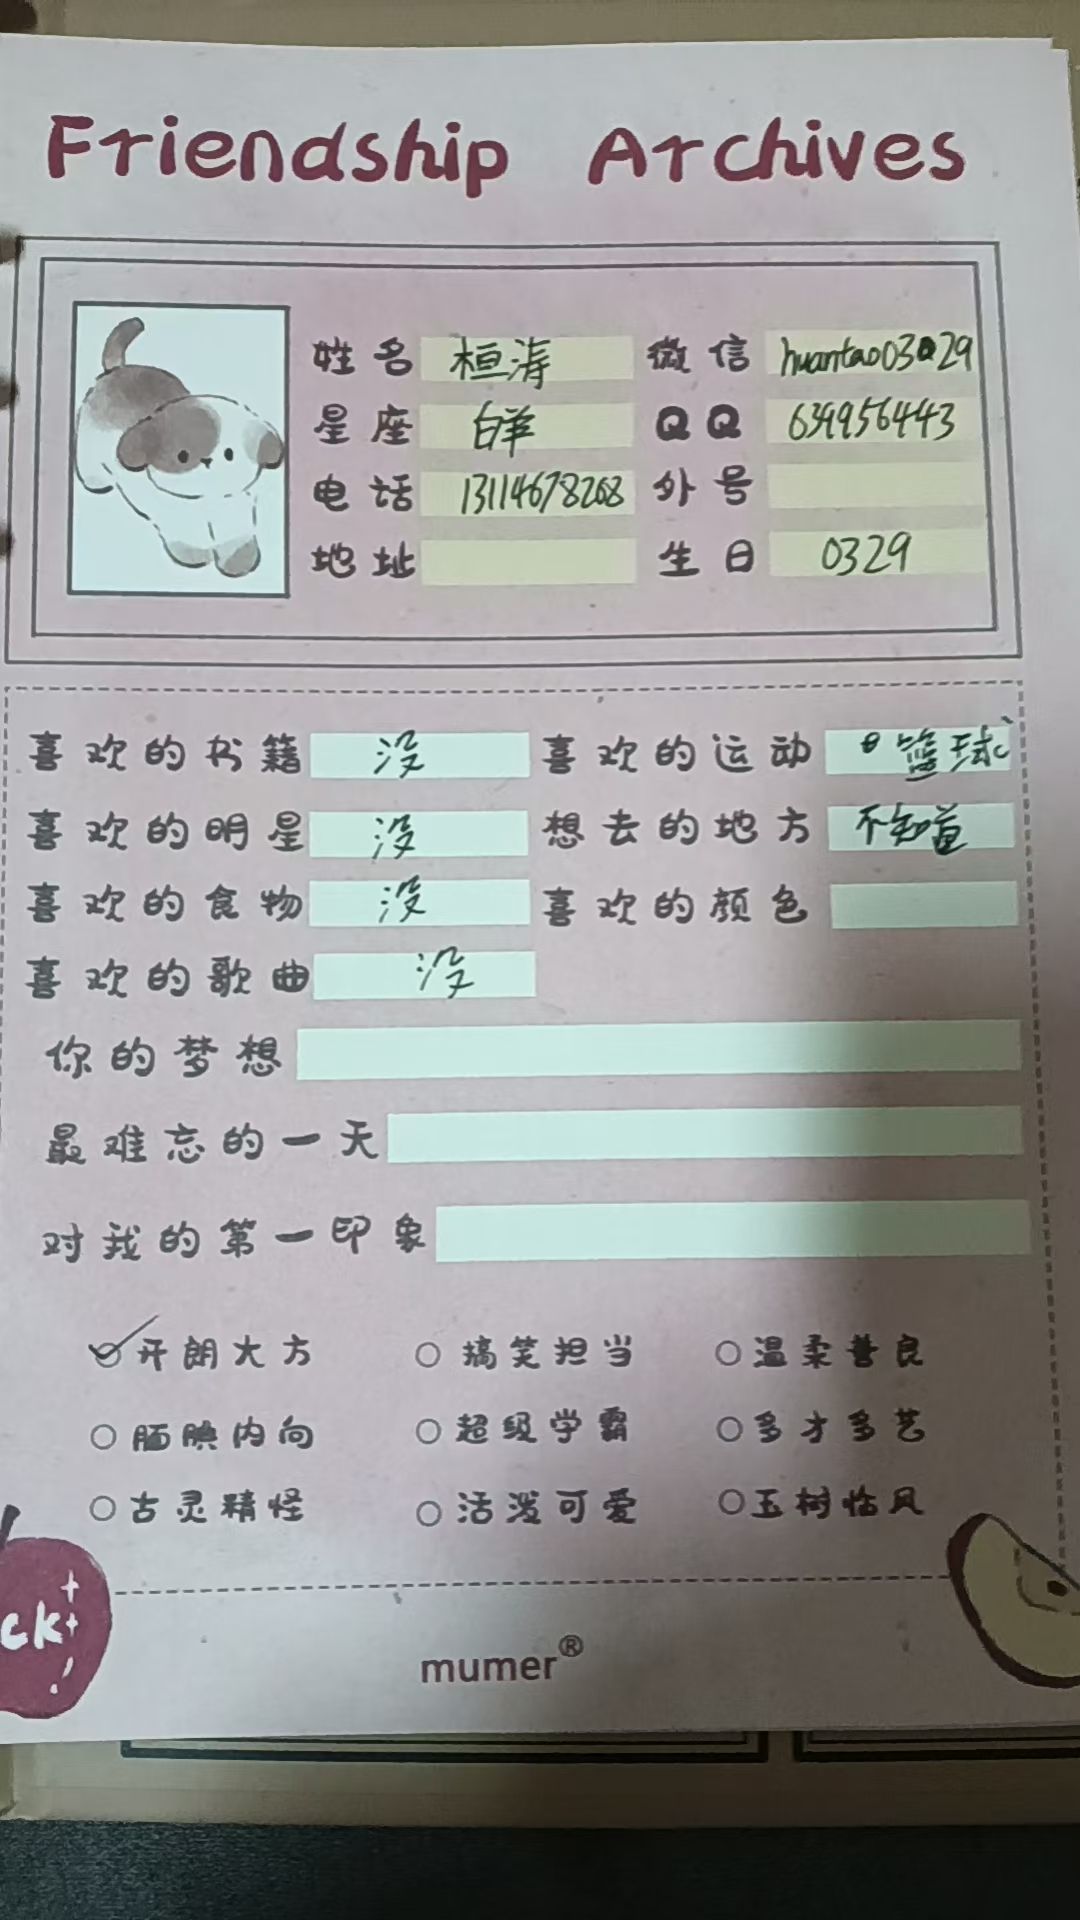 Friendship Archives
姓名 桓涛 微信 huantao0329
星座 白羊 QQ 639956443
电话 13114678268 外号
地址 生日 0329
喜欢的书籍 没 喜欢的运动 篮球
喜欢的明星 没 想去的地方 不知道
喜欢的食物 没 喜欢的颜色
喜欢的歌曲 没
你的梦想
最难忘的一天
对我的第一印象
开朗大方 搞笑担当 温柔善良
腼腆内向 超级学霸 多才多艺
古灵精怪 活泼可爱 玉树临风
ck
mumer®